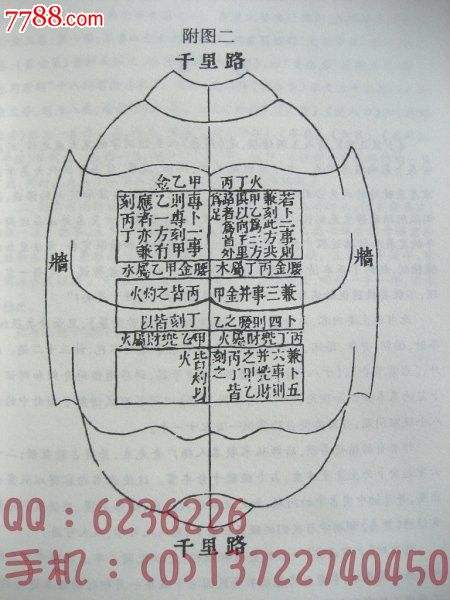 7788.com
附图二
千里路
丙丁火
甲乙
若卜二事則
為足
專卜一事
則專刻甲
乙一方有
應者亦兼
刻丙丁
腰金丙丁屬木
腰金甲乙屬水
兼三事并金甲
丙皆之灼火
卜四則腰之乙
丁刻皆以
丙丁兜財屬火
甲乙兜財屬火
兼卜五
六事則
并兜財
之甲乙
丙丁皆
刻之
皆灼以
火
墻
墻
千里路
QQ：6236226
手机：(0)13722740450